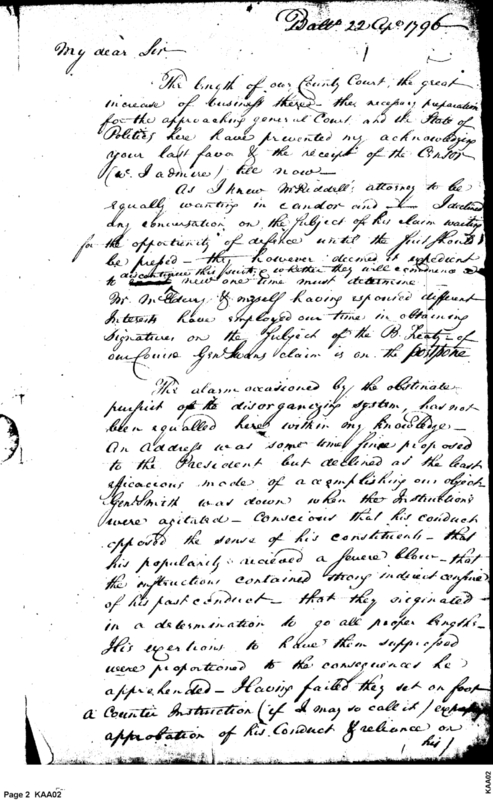 Balto 22 Apl 1796
My dear Sir
The length of our County Court, the great
increase of business there - the necessary preparation
for the approaching general Court and the State of
Politics here have prevented my acknowledging
your last favor & the receipt of the Censor
(wc. I admire) till now -
As I knew McRiddell's attorney to be
equally wanting in candor and - I declined
any conversation on the subject of his claim waiting
for the opportunity of defence until the suit should
be pressed - they however deemed it expedient
to discontinue this suit & whether they will commence a
new one time must determine -
Mr. McElderry & myself having espoused different
Interests have employed our time in obtaining
signatures on the subject of the B. Treaty - of
our Course Genl Swans claim is on the postpone
The alarm occasioned by the obstinate
pursuit of the disorganizing system, has not
been equalled here within my knowledge -
An address was some time since proposed
to the President but declined as the least
efficacious mode of accomplishing our object
Genl Smith was down when the Instructions
were agitated - Conscious that his conduct
opposed the sense of his constituents - that
his popularity recieved a severe blow - that
the instructions contained strong indirect censure
of his past conduct - that they originated
in a determination to go all proper lengths -
His exertions to have them suppressed
were proportioned to the consequences he
apprehended - Having failed they set on foot
a Counter Instruction (if I may so call it) expressing
approbation of his Conduct & reliance on
his/
Page 2 KAA02
KAA02